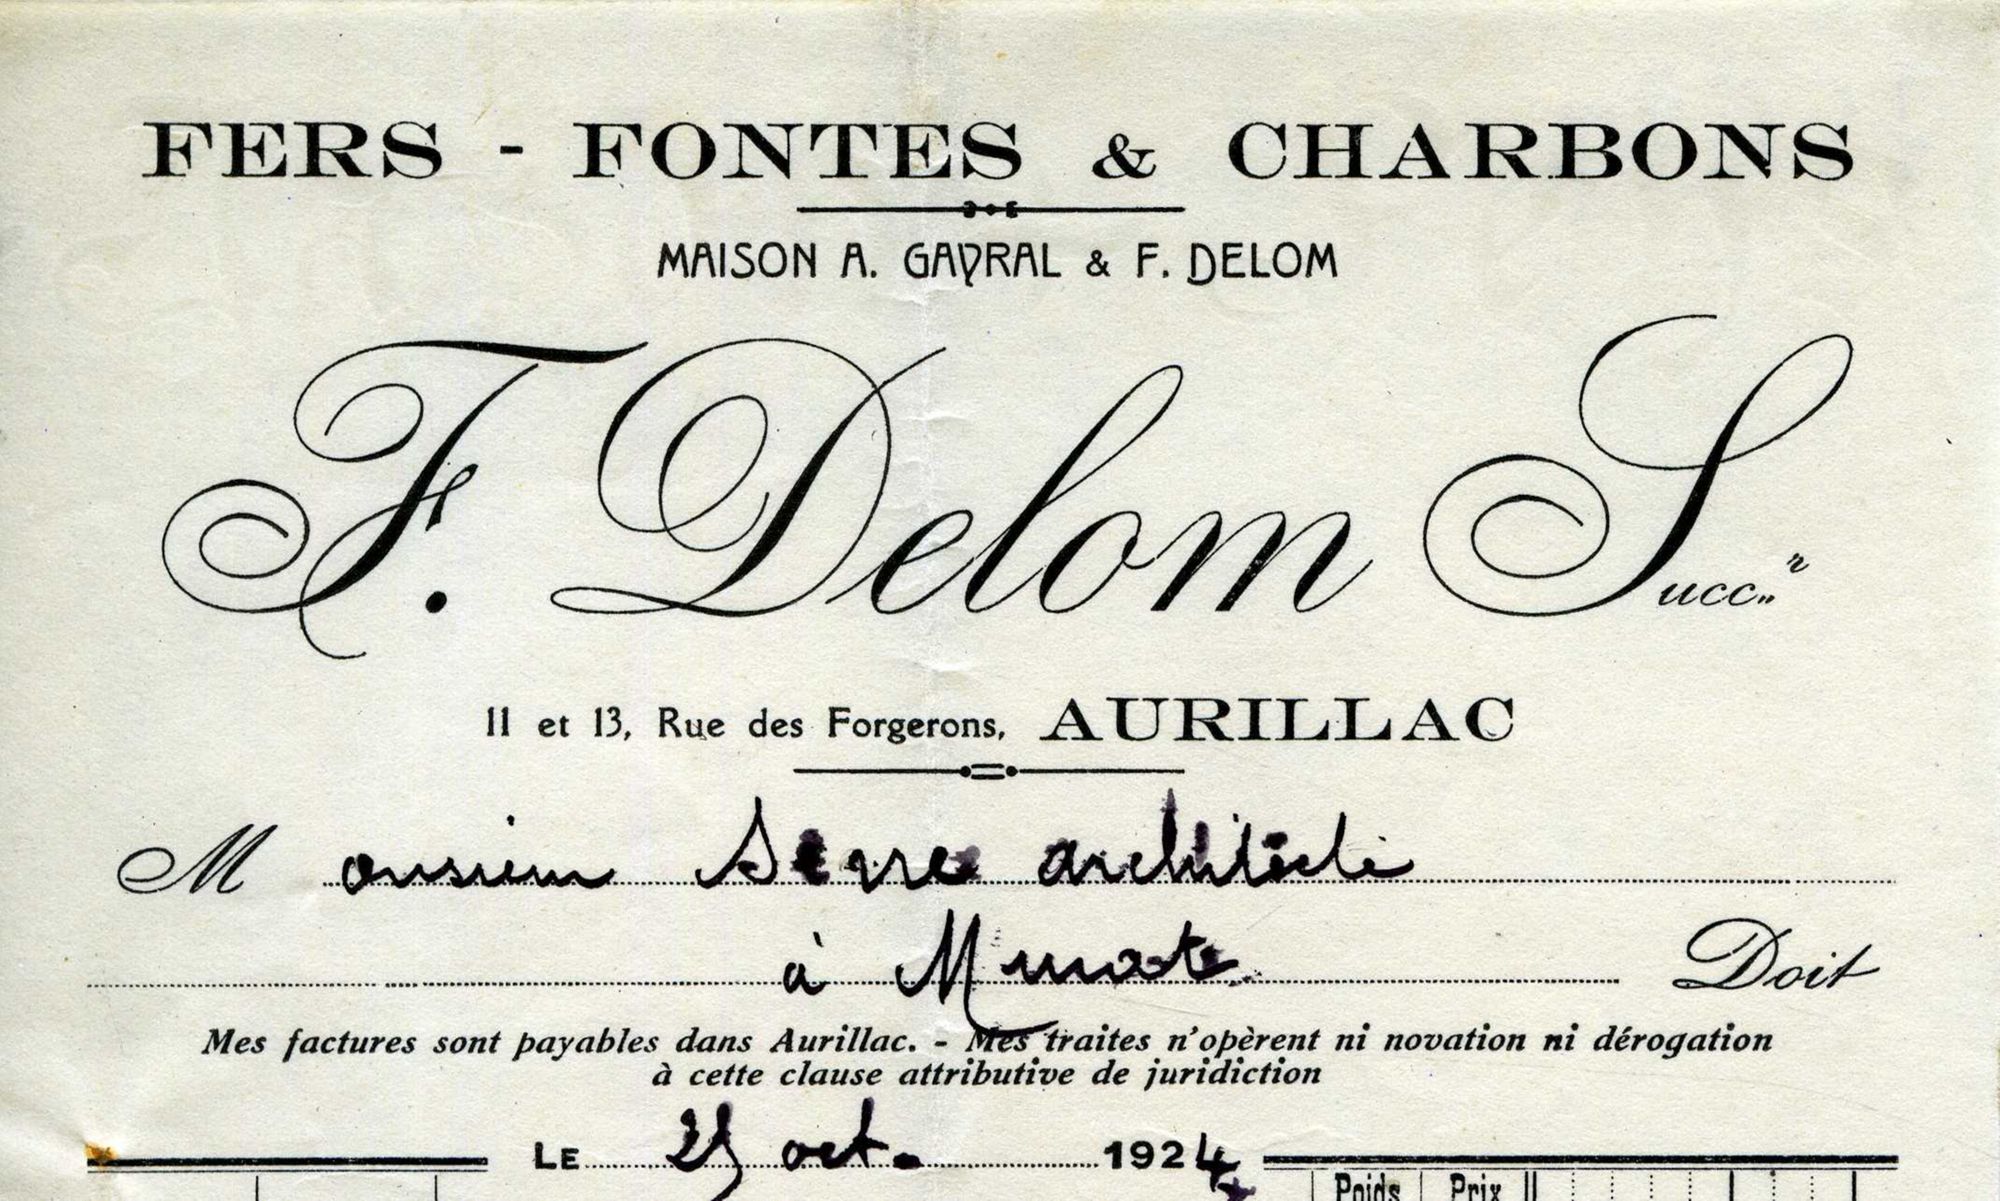 FERS - FONTES & CHARBONS
MAISON A. GAYRAL & F. DELOM
F. Delom Succ.r
11 et 13, Rue des Forgerons, AURILLAC
Monsieur Serre architecte
à Murat Doit
Mes factures sont payables dans Aurillac. - Mes traites n'opèrent ni novation ni dérogation
à cette clause attributive de juridiction
LE 25 oct. 1924
Poids Prix